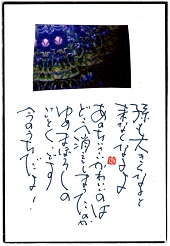 孫も大きくなると
来なくなるよ
あの小さいかわいいのは
どこへ消えてしまったのか
ゆめまぼろしの
ごとくです
今のうちだよー!